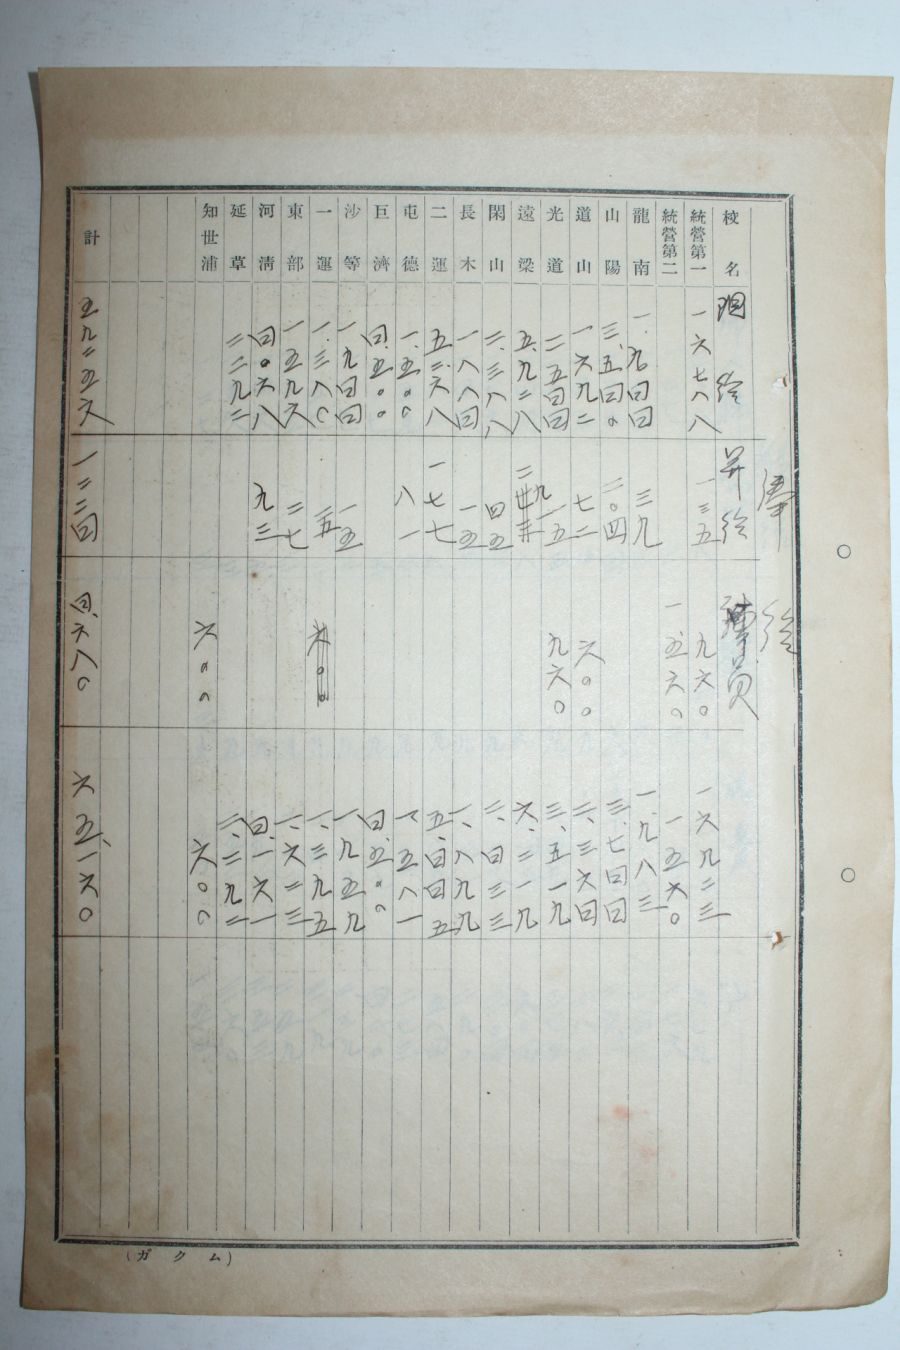 俸給
校名 現給 昇給 員
統營第一 一六七八八 一三五 九六〇 一六九二三
統營第二 一、五六〇 一五六〇
龍南 一、九四四 三九 一、九八三
山陽 三、五四〇 二〇四 三、七四四
道山 一六九二 七二 六〇〇 二、三六四
光道 二五四四 一五 九六〇 三、五一九
遠梁 五、九二八 二九一 六、二一九
閑山 二、三八八 四五 二、四三三
長木 一八八四 一五 一、八九九
二運 五二六八 一七七 五、四四五
屯德 一、五〇〇 八一 一、五八一
巨濟 四、五〇〇 四、五〇〇
沙等 一、九四四 一五 一、九五九
一運 一、三八〇 一五 六〇〇 一、三九五
東部 一五九六 二七 一、六二三
河淸 四〇六八 九三 四、一六一
延草 二二九二 二、二九二
知世浦 六〇〇 六〇〇
計 五九二五六 一二二四 四、六八〇 六五、一六〇
(ムクガ)